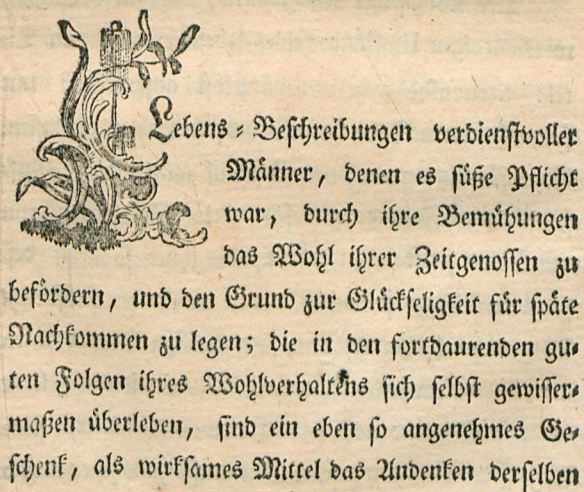 Lebens-Beschreibungen verdienstvoller
Männer, denen es süße Pflicht
war, durch ihre Bemühungen
das Wohl ihrer Zeitgenossen zu
befördern, und den Grund zur Glückseligkeit für späte
Nachkommen zu legen; die in den fortdaurenden gu-
ten Folgen ihres Wohlverhaltens sich selbst gewisser-
maßen überleben, sind ein eben so angenehmes Ge-
schenk, als wirksames Mittel das Andenken derselben